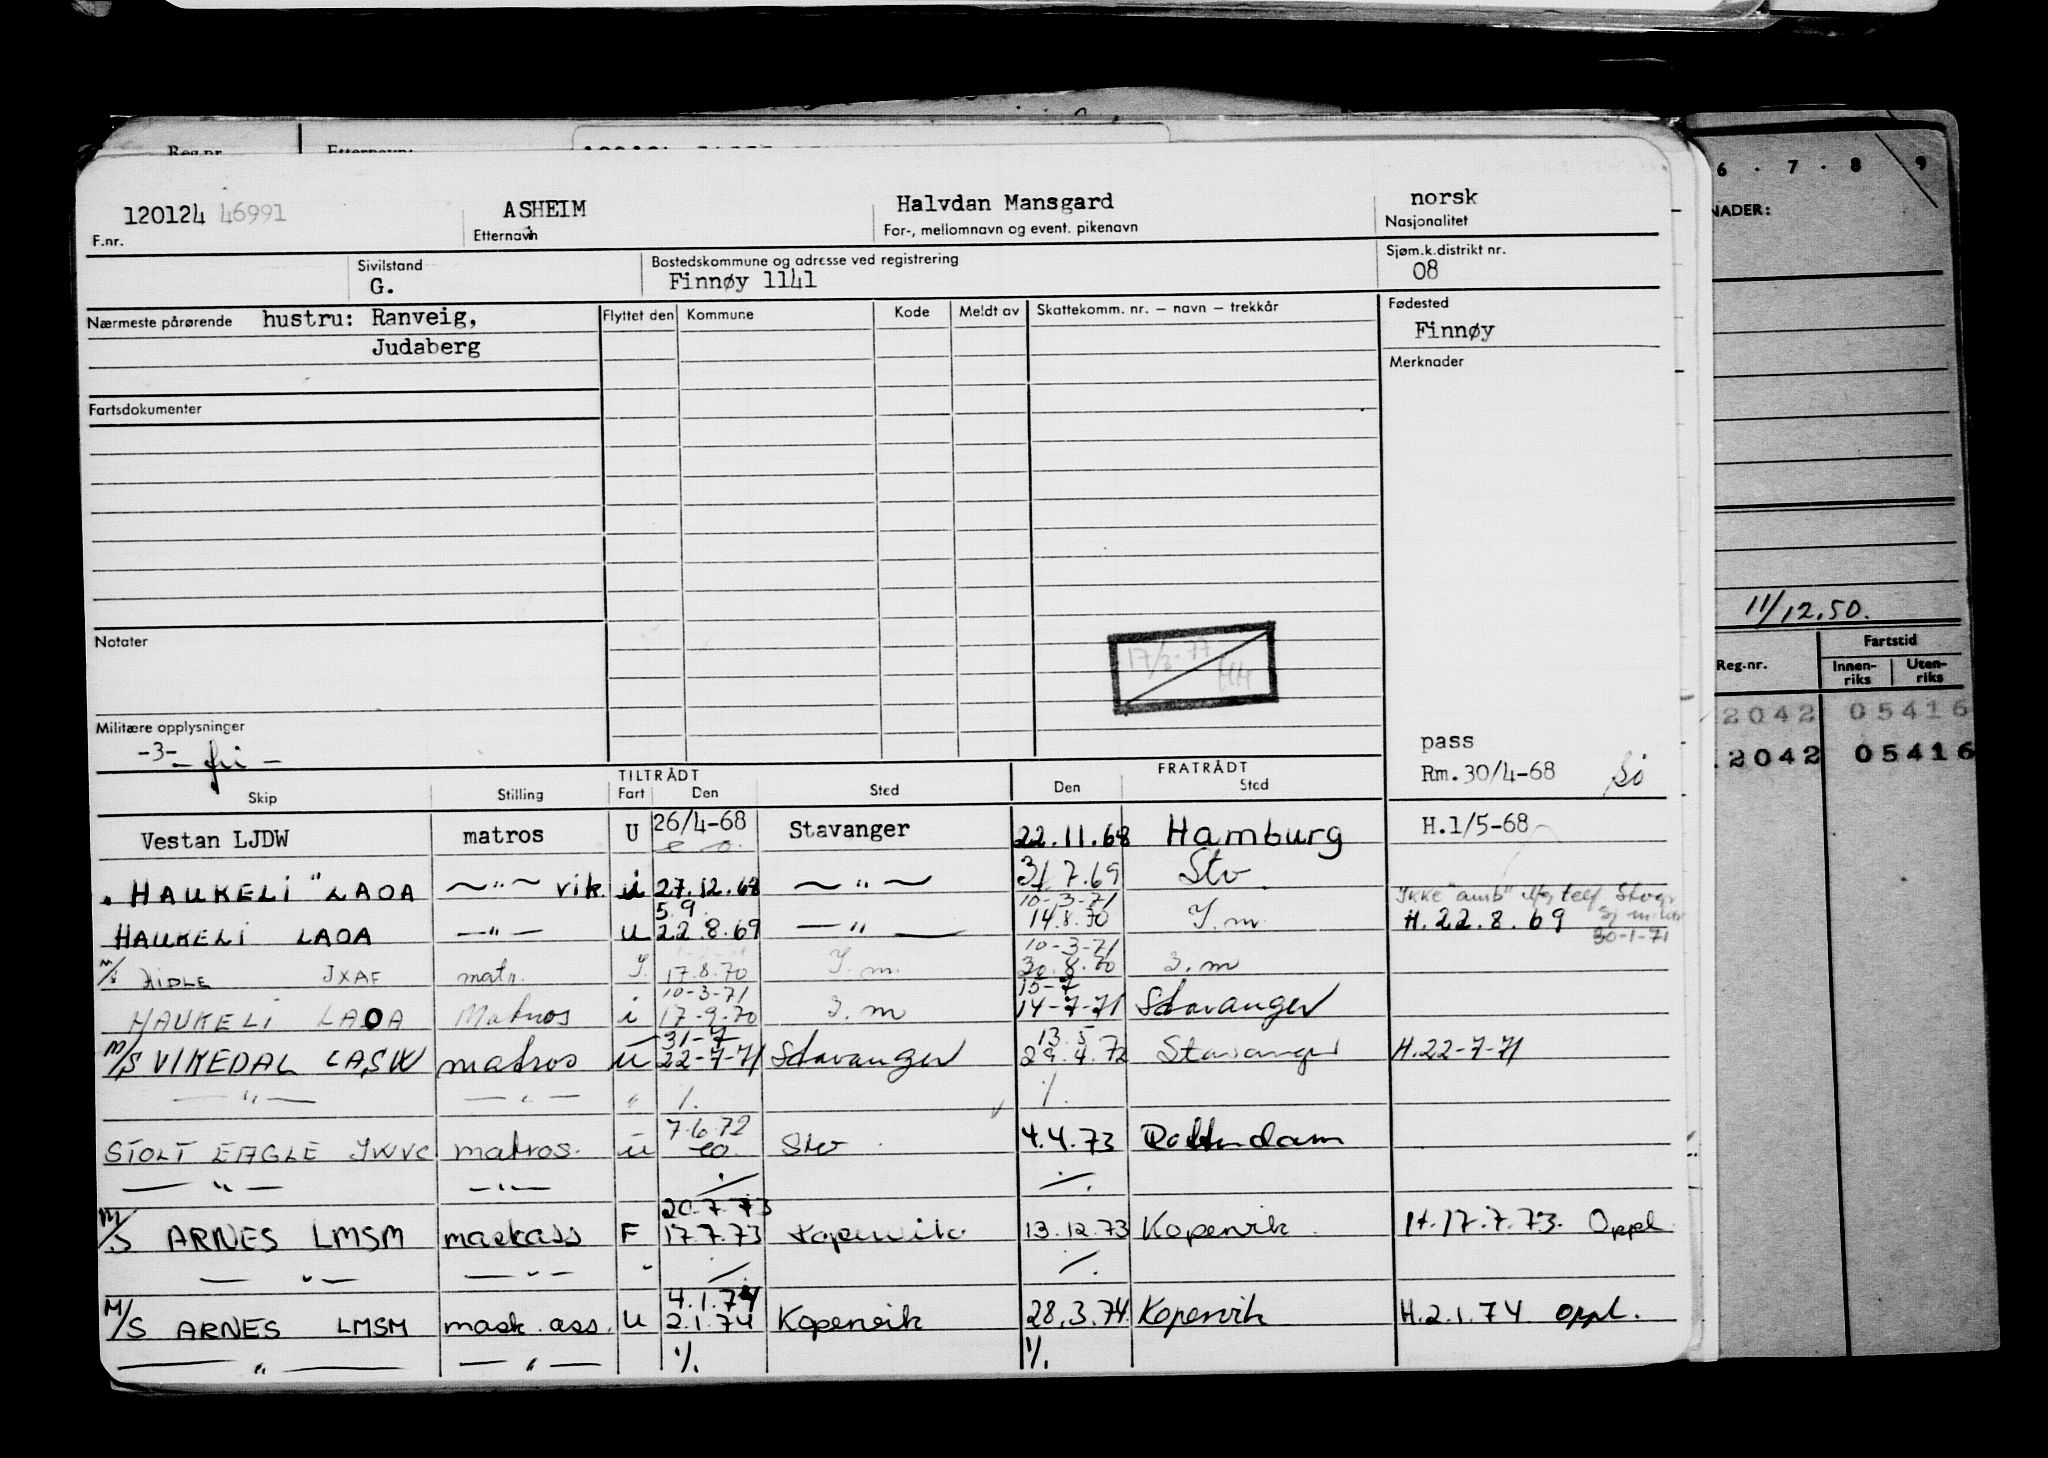 Reg.nr. Etternavn:
120124 46991 ASHEIM Halvdan Mansgard norsk
F.nr. Etternavn For-, mellomnavn og event. pikenavn Nasjonalitet
Sivilstand Bostedskommune og adresse ved registrering Sjøm.k.distrikt nr.
G. Finnøy 1141 08
Nærmeste pårørende hustru: Ranveig, Flyttet den Kommune Kode Meldt av Skattekomm. nr. – navn – trekkår Fødested
Judaberg Finnøy
Merknader
Fartsdokumenter
Notater
17/3-77
HH
Militære opplysninger
-3- – fri – pass
Rm.30/4-68
TILTRÅDT FRATRÅDT
Skip Stilling Fart Den Sted Den Sted
Vestan LJDW matros U 26/4-68 Stavanger 22.11.68 Hamburg H.1/5-68
"HAUKELI" LAOA —"— vik. i 27.12.68 —"— 31.7.69 Stv
5.9. 10-3-71 Ikke "amb"
HAUKELI LAOA —"— U 22.8.69 —"— 14.8.70 I.m. H.22.8.69
30-1-71
10-3-71
M/S AIDLE JXAF matr. I. 17.8.70 I.m. 30.8.70 I.m
10-3-71 15-7
HAUKELI LAOA Matros i 17-9-70 I.m 14-7-71 Stavanger
31-7 13.5
M/S VIKEDAL LASW matros u 22-7-71 Stavanger 29.4.72 Stavanger H.22-7-71
—"— —"— " /. /.
7.6.72
STOLT EAGLE JWVC matros. u eo. Stv 4.4.73 Rotterdam
—"— —"— ./. ./.
20.7.73
M/S ARNES LMSM maskass F 17.7.73 Kopervik 13.12.73 Kopervik H.17.7.73. Oppl.
—"— —"— " ./. ./.
4.1.74
M/S ARNES LMSM mask.ass. U 2.1.74 Kopervik 28.3.74 Kopervik H.2.1.74 oppl.
—"— —"— ./. ./.
6 . 7 . 8 . 9
NADER:
11/12.50.
Reg.nr. Fartstid
Innen-riks Uten-riks
2042 05416
.2042 05416